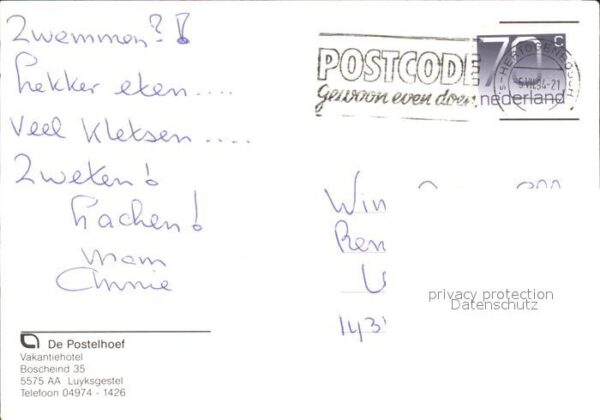 Zwemmen?!
Lekker eten....
Veel Kletsen....
Zweten!
Lachen!
Mam
Annie
POSTCODE
gewoon even doen.
70 c
nederland
'S-HERTOGENBOSCH
5.VII.84-21
Win
Ren
U
143
privacy protection
Datenschutz
De Postelhoef
Vakantiehotel
Boscheind 35
5575 AA Luyksgestel
Telefoon 04974 - 1426